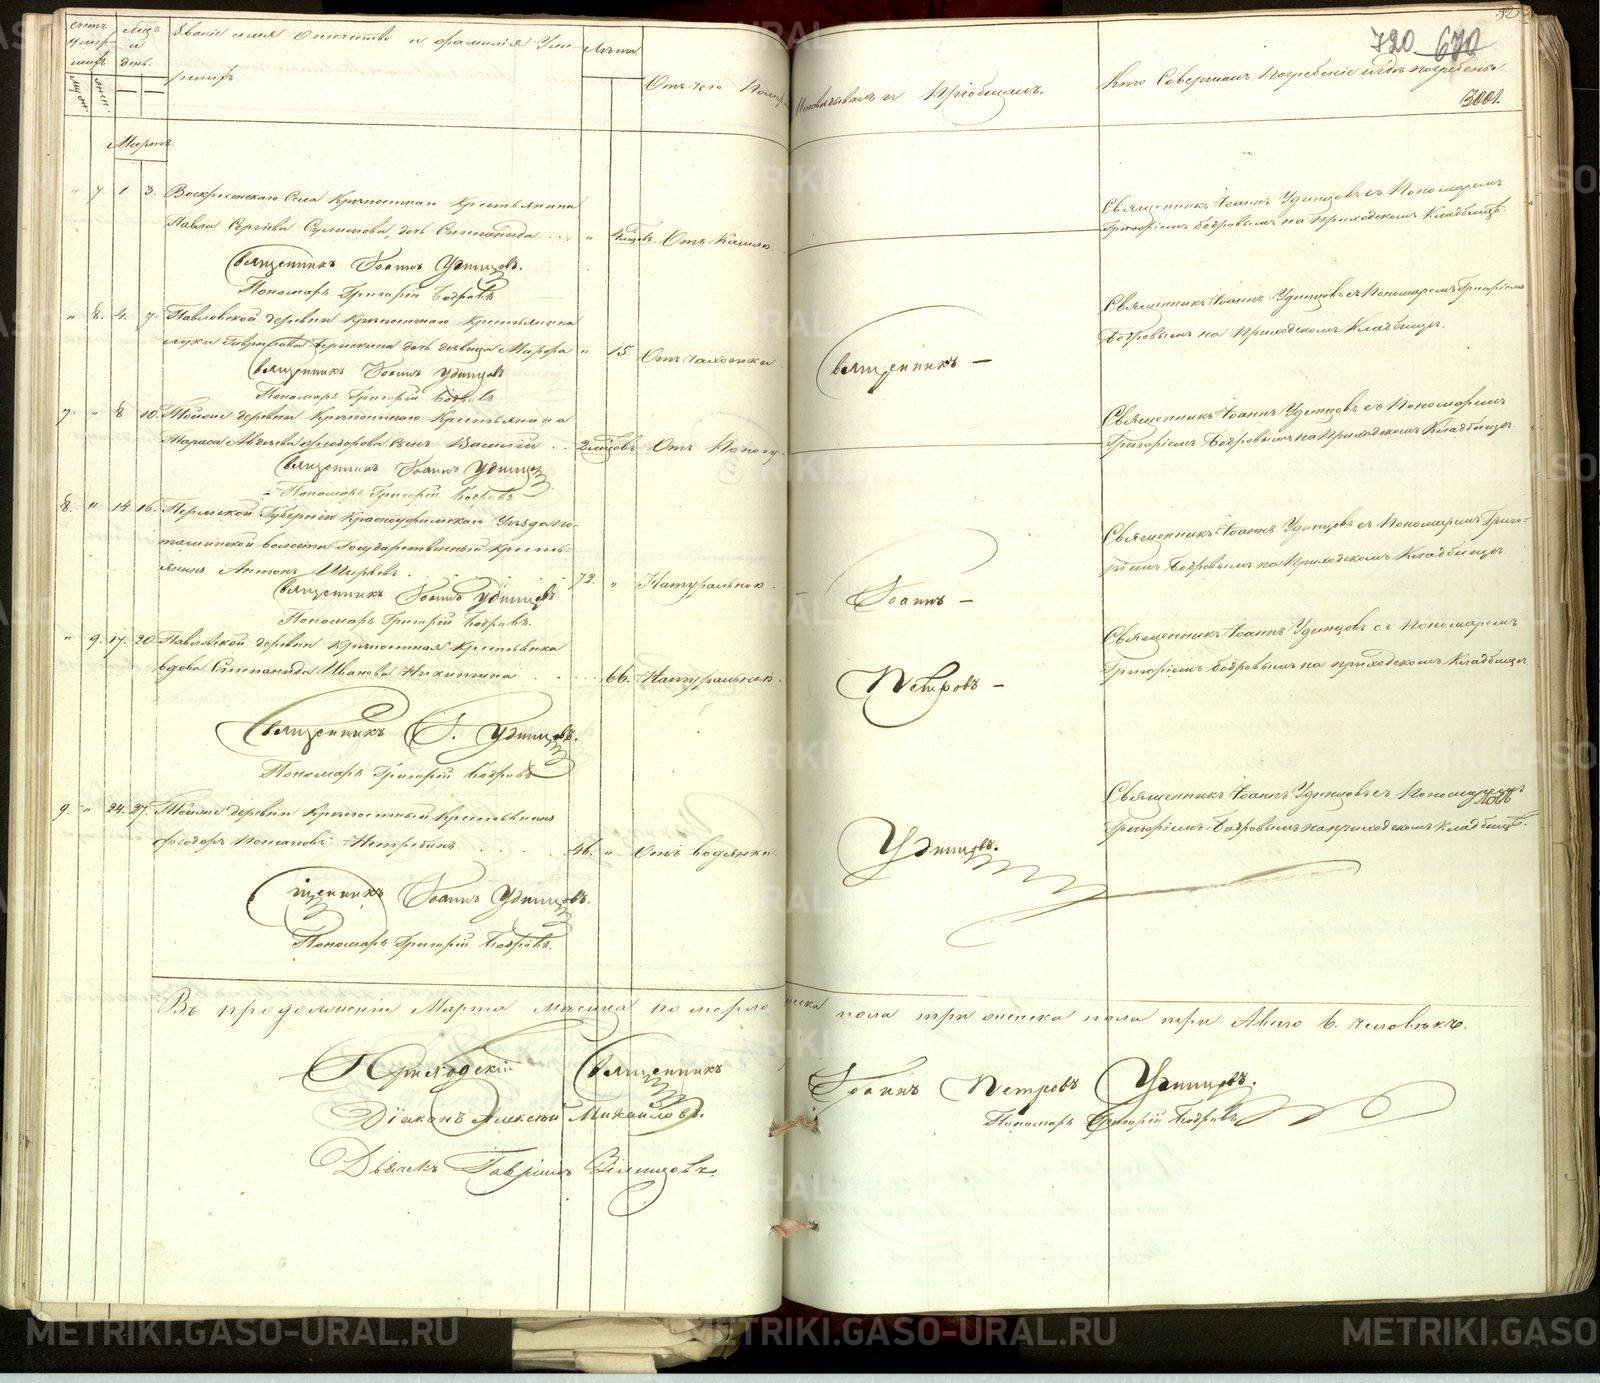 счетъ умер-шихъ
Муж.
жен.
Мѣц. и день.
Званіе имя Отчество и фамилія Уме-
ршихъ
Лѣта
Отъ чего Померъ
Исповѣдывалъ и Пріобщалъ.
Кто Совершалъ Погребеніе и гдѣ погребены.
720 670
Мартъ
" 7 1 3. Воскресенскаго Села Крѣпостнаго Крестьянина
Павла Сергѣева дочь Степанида " 4 мѣсяцовъ Отъ Кашля.
Священникъ Іоаннъ Удинцовъ съ Пономаремъ
Григоріемъ Бобровымъ на Приходскомъ Кладбищѣ.
Священникъ Іоаннъ Удинцовъ.
Пономарь Григорій Бобровъ
" 8. 4. 7. Павловской деревни Крѣпостнаго Крестьянина
Луки Гаврилова дочь девица Марфа " 15 Отъ чахотки
Священникъ —
Священникъ Іоаннъ Удинцовъ съ Пономаремъ Григоріемъ
Бобровымъ на Приходскомъ Кладбищѣ.
Священникъ Іоаннъ Удинцовъ
Пономарь Григорій Бобровъ
7. " 8 10. Тойже деревни Крѣпостнаго Крестьянина
Тараса Авдѣева Сынъ Василій 2 мѣсяцовъ Отъ Поносу
Священникъ Іоаннъ Удинцовъ съ Пономаремъ
Григоріемъ Бобровымъ на Приходскомъ Кладбищѣ.
Священникъ Іоаннъ Удинцовъ
Пономарь Григорій Бобровъ
8. " 14 16. Пермской Губерніи Красноуфимскаго Уѣзда По-
ташинской волости Государственный Кресть-
янинъ Антонъ 72. " Натурально.
Іоаннъ —
Священникъ Іоаннъ Удинцовъ съ Пономаремъ Григо-
ріемъ Бобровымъ на Приходскомъ Кладбищѣ.
Священникъ Іоаннъ Удинцовъ
Пономарь Григорій Бобровъ.
" 9. 17. 20. Павловской деревни Крѣпостная Крестьянка
вдова Степанида Иванова Никитина 66. Натурально.
Петровъ —
Священникъ Іоаннъ Удинцовъ съ Пономаремъ
Григоріемъ Бобровымъ на приходскомъ Кладбищѣ
Священникъ І. Удинцовъ.
Пономарь Григорій Бобровъ
9. " 24. 27. Тойже деревни Крѣпостный Крестьянинъ
Феодоръ Потаповъ 46. " Отъ водянки.
Удинцовъ.
Священникъ Іоаннъ Удинцовъ съ Пономаремъ
Григоріемъ Бобровымъ на приходскомъ Кладбищѣ.
Священникъ Іоаннъ Удинцовъ.
Пономарь Григорій Бобровъ.
Въ продолженіи Марта мѣсяца померло мужеска пола три женска пола три А всего 6. человѣкъ.
Приходскій Священникъ Іоаннъ Петровъ Удинцовъ.
Діаконъ Алексѣй Михайловъ.
Пономарь Григорій Бобровъ
Дьячекъ Гавріилъ
METRIKI.GASO-URAL.RU